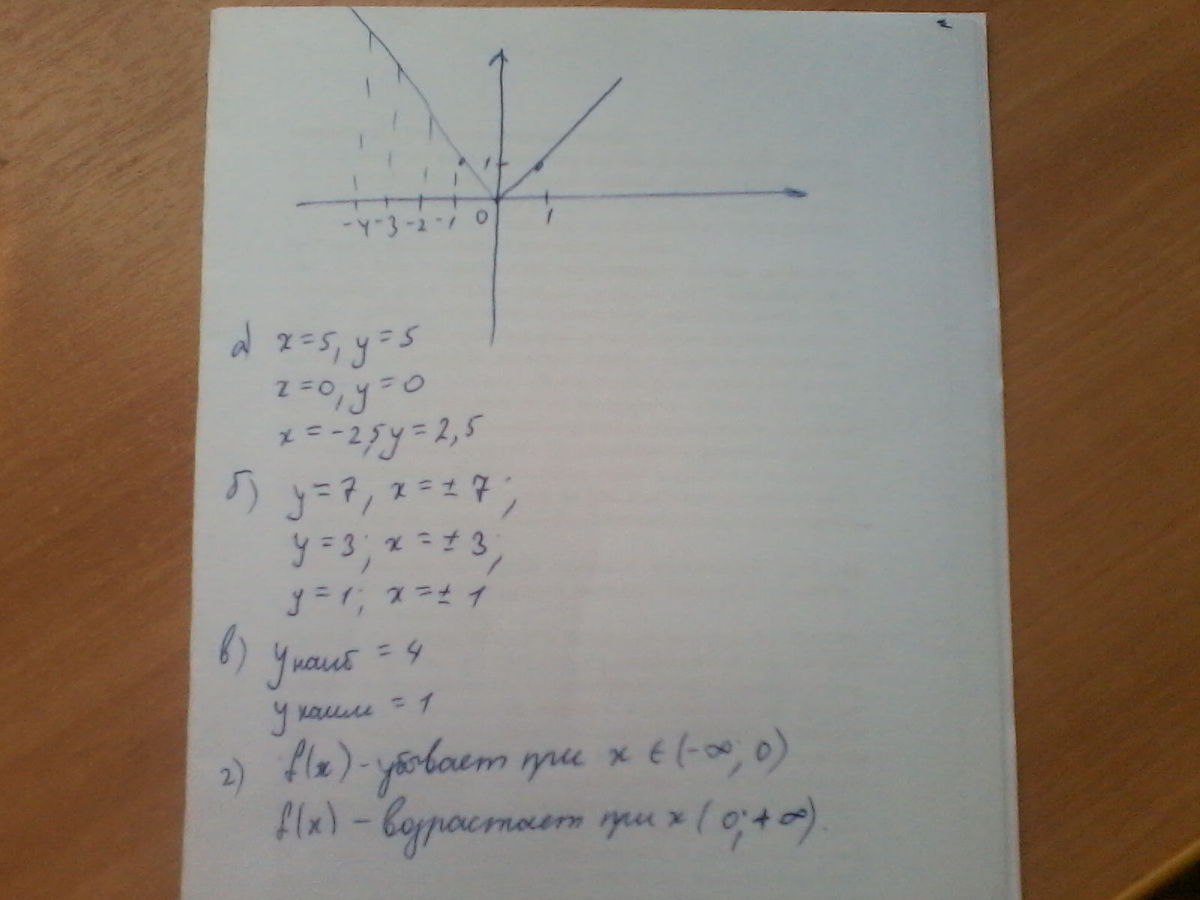 1
-4 -3 -2 -1 0 1
а) x=5, y=5
x=0, y=0
x=-2,5 y=2,5
б) y=7, x=±7;
y=3; x=±3;
y=1; x=±1
в) y наиб = 4
y наим = 1
г) f(x) - убывает при x ∈ (-∞; 0)
f(x) - возрастает при x (0; +∞).